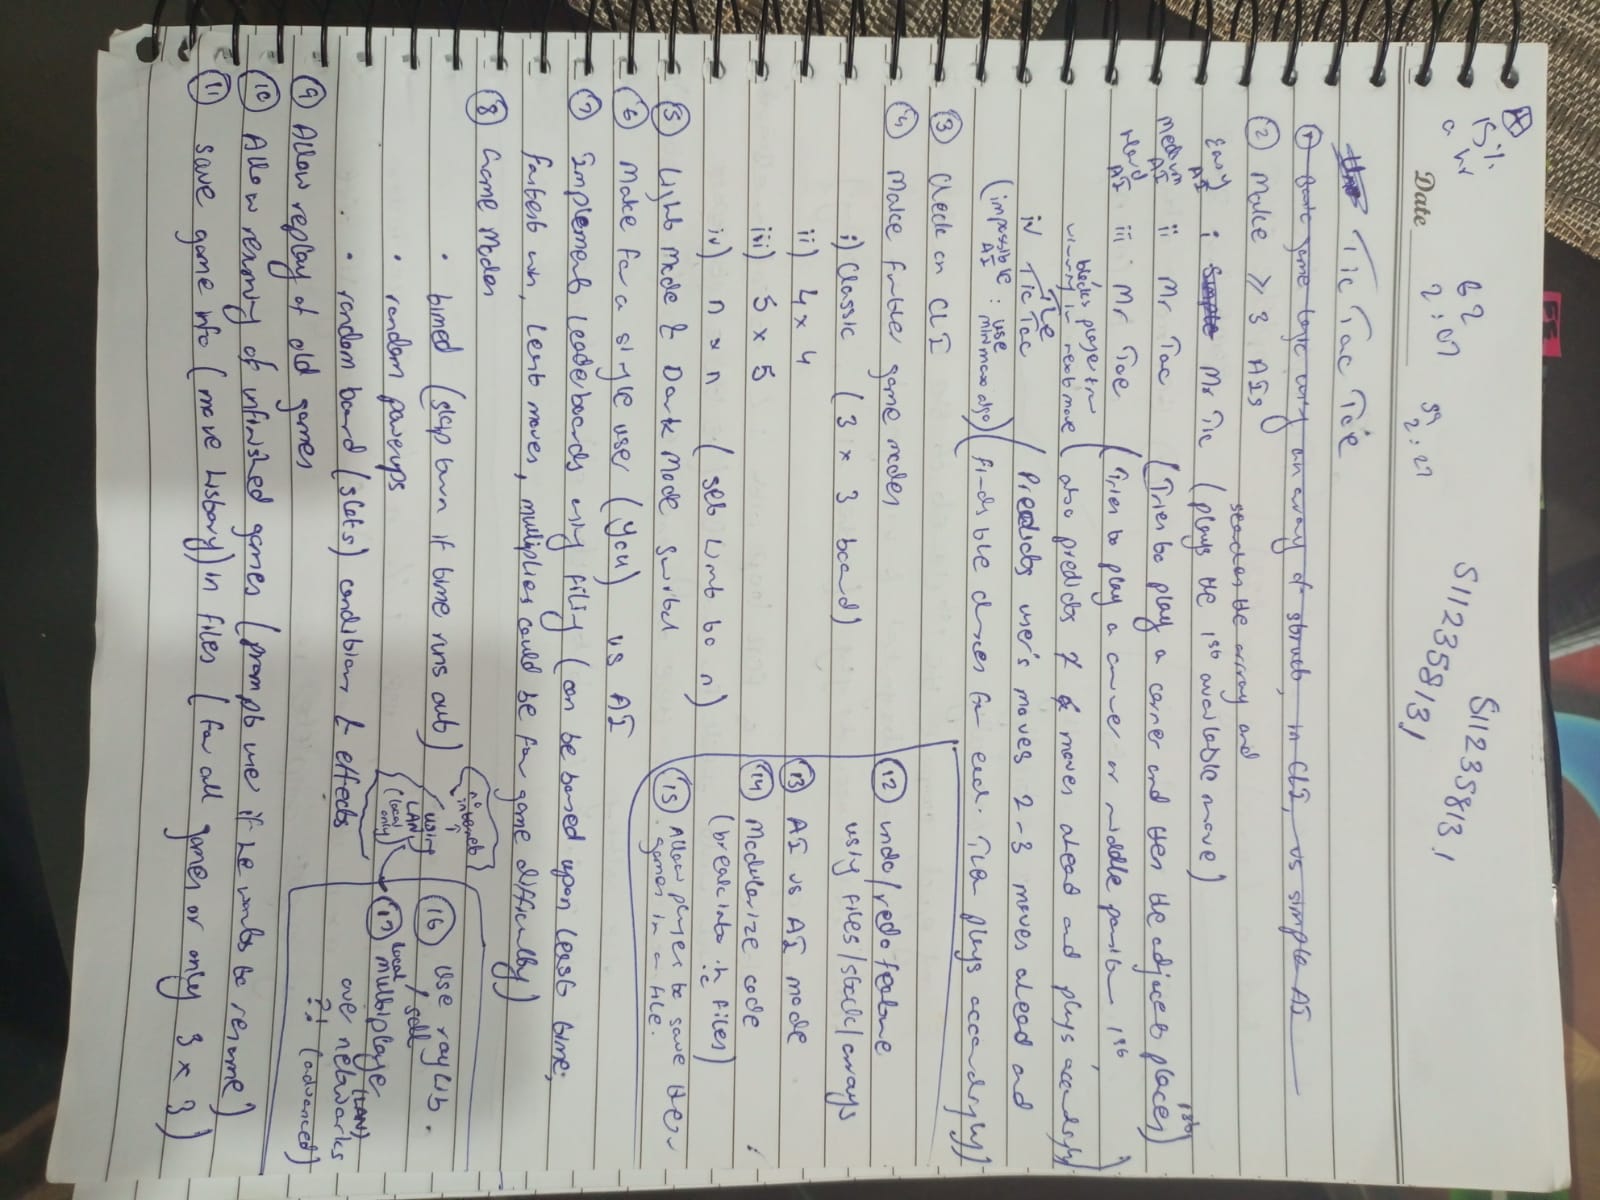 15%
a hr
62
2:07
59
2:27
S11235813!
S11235813!
Date
Tic Tac Toe
① Basic game logic using an array of structs, in CLI, vs simple AI
② Make ⩾ 3 AIs
searches the array and
Easy AI i Simple Mr Tic (plays the 1st available move)
Medium AI ii Mr Tac (Tries to play a corner and then the adjacent places) 1st
Hard AI iii Mr Toe (Tries to play a corner or middle position 1st,
blocks player from winning in next move
also predicts moves ahead and plays accordingly)
iv The Tic Tac (Predicts user's moves 2-3 moves ahead and
(impossible AI : use minimax algo) finds the chances for each. Then plays accordingly)
③ Check on CLI
④ Make further game modes
i) Classic (3 x 3 board)
ii) 4 x 4
iii) 5 x 5
iv) n x n (set limit to n)
⑤ Light Mode & Dark Mode switch
⑥ Make for a single user (you) vs AI
⑦ Implement Leaderboards using filing (can be based upon least time,
fastest win, least moves, multiplies could be for game difficulty)
⑧ Game Modes
• timed (skip turn if time runs out)
• random powerups
• random board (slots) conditions & effects
⑨ Allow replay of old games
⑩ Allow resuming of unfinished games (prompt user if he wants to resume)
⑪ save game info (move history) in files (for all games or only 3 x 3)
⑫ undo/redo feature
using files/stack/arrays
⑬ AI vs AI mode
⑭ Modularize code
(break into .h files)
.c
⑮ Allow player to save their
games in a file.
no internet
↑
using
LAN
(local only)
⑯ Use raylib.
/ sdl
⑰ local multiplayer (LAN)
over networks
?! (advanced)